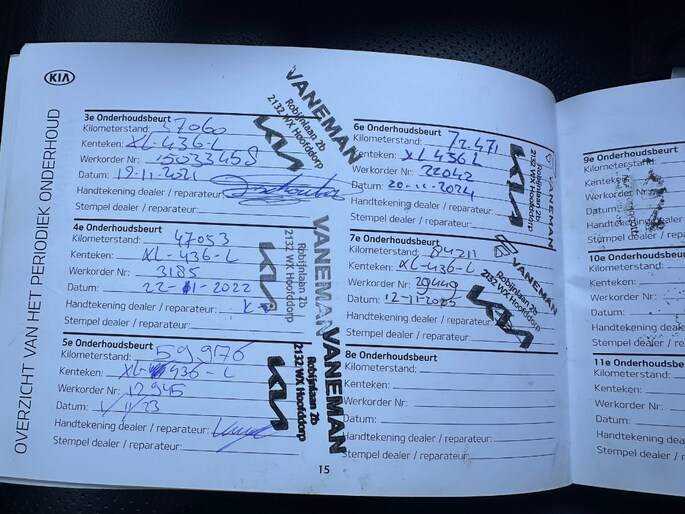 KIA
OVERZICHT VAN HET PERIODIEK ONDERHOUD
3e Onderhoudsbeurt
Kilometerstand: 37060
Kenteken: XL-436-L
Werkorder Nr: 15033458
Datum: 19-11-2021
Handtekening dealer / reparateur:
Stempel dealer / reparateur:
VANEMAN
Robijnlaan 2b
2132 WX Hoofddorp
KIA
4e Onderhoudsbeurt
Kilometerstand: 47053
Kenteken: XL-436-L
Werkorder Nr: 3185
Datum: 22-11-2022
Handtekening dealer / reparateur:
Stempel dealer / reparateur:
VANEMAN
Robijnlaan 2b
2132 WX Hoofddorp
KIA
5e Onderhoudsbeurt
Kilometerstand: 59976
Kenteken: XL-436-L
Werkorder Nr: 12945
Datum: 1/11/23
Handtekening dealer / reparateur:
Stempel dealer / reparateur:
VANEMAN
Robijnlaan 2b
2132 WX Hoofddorp
KIA
6e Onderhoudsbeurt
Kilometerstand: 72.471
Kenteken: XL436L
Werkorder Nr: 22042
Datum: 20-11-2024
Handtekening dealer / reparateur:
Stempel dealer / reparateur:
VANEMAN
Robijnlaan 2b
2132 WX Hoofddorp
KIA
7e Onderhoudsbeurt
Kilometerstand: 84211
Kenteken: XL-436-L
Werkorder Nr: 29449
Datum: 12-11-
Handtekening dealer / reparateur:
Stempel dealer / reparateur:
VANEMAN
Robijnlaan 2b
2132 WX Hoofddorp
KIA
8e Onderhoudsbeurt
Kilometerstand:
Kenteken:
Werkorder Nr:
Datum:
Handtekening dealer / reparateur:
Stempel dealer / reparateur:
15
9e Onderhoudsbeurt
Kilometerstand:
Kenteken:
Werkorder Nr:
Datum:
Handtekening dealer
Stempel dealer / re
10e Onderhoudsbe
Kilometerstand:
Kenteken:
Werkorder Nr:
Datum:
Handtekening dealer
Stempel dealer / re
11e Onderhoudsbe
Kilometerstand:
Kenteken:
Werkorder Nr:
Datum:
Handtekening dealer
Stempel dealer / rep